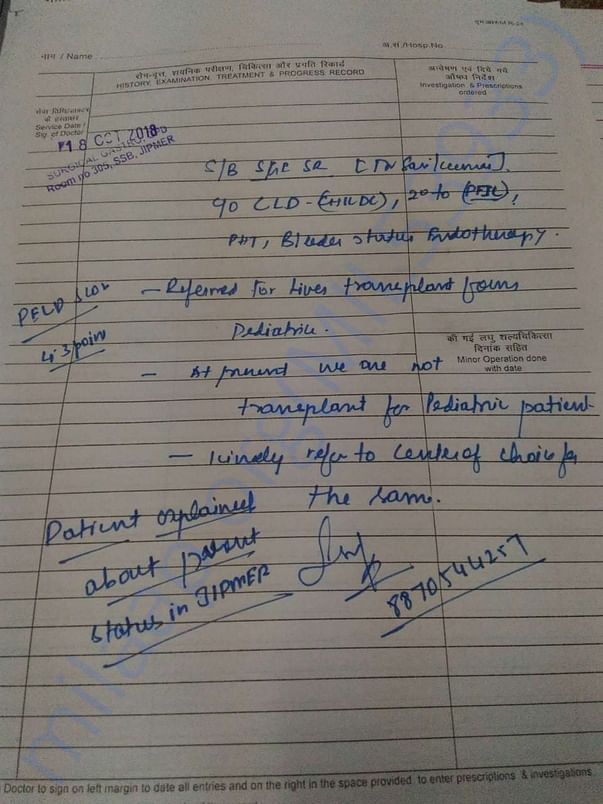 नाम / Name
अ.सं./Hosp.No.
रोग-वृत्त, शयनिक परीक्षण, चिकित्सा और प्रगति रिकार्ड
HISTORY, EXAMINATION, TREATMENT & PROGRESS RECORD
अन्वेषण एवं दिये गये
औषध निर्देश
Investigation & Prescriptions
ordered
सेवा तिथि/डाक्टर
के हस्ताक्षर
Service Date /
Sig. of Doctor
18 OCT 2018
SURGICAL
Room no 305, SSB, JIPMER
S/B SGE SR
CLD - (), 2° to (PFIC),
PHT, Bleeder status Endotherapy.
PELD
43 point
- Referred for Liver transplant from
Pediatric.
की गई लघु शल्यचिकित्सा
दिनांक सहित
Minor Operation done
with date
- At present we are not
transplant for Pediatric patient
- Kindly refer to center of choice for
the same.
Patient explained
about present
status in JIPMER
8870544257
Doctor to sign on left margin to date all entries and on the right in the space provided, to enter prescriptions & investigations.